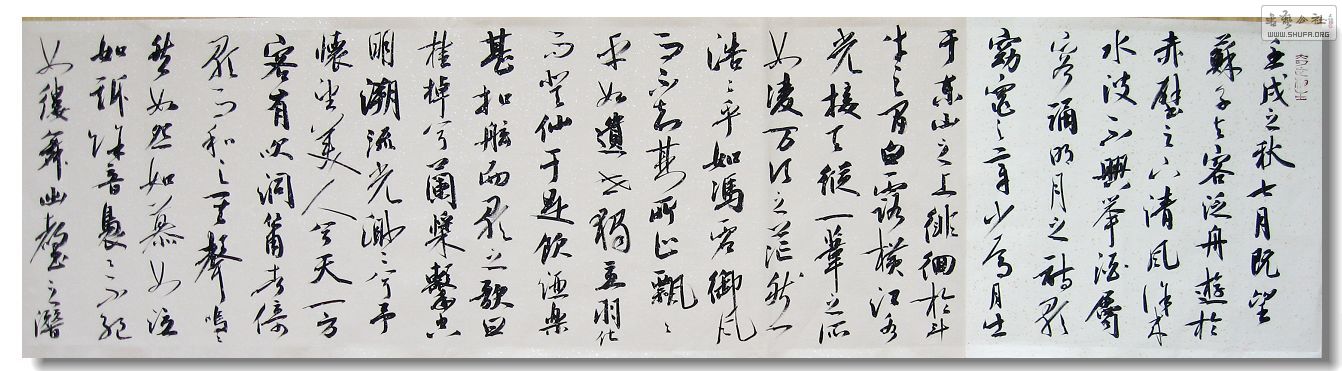 壬戌之秋七月既望
蘇子与客泛舟遊於
赤壁之下清风徐来
水波不興举酒屬
客誦明月之詩歌
窈窕之章少焉月出
于東山之上徘徊於斗
牛之间白露横江水
光接天縱一葦之所
如凌万顷之茫然
浩々乎如馮虚御风
而不知其所止飄々
乎如遺世獨立羽化
而登仙于是饮酒樂
甚扣舷而歌之歌曰
桂棹兮蘭槳擊空
明溯流光渺々兮予
懷望美人兮天一方
客有吹洞簫者倚
歌而和之其聲嗚々
然如怨如慕如泣
如訴餘音裊々不絕
如縷舞幽壑之潛
书艺公社
WWW.SHUFA.ORG